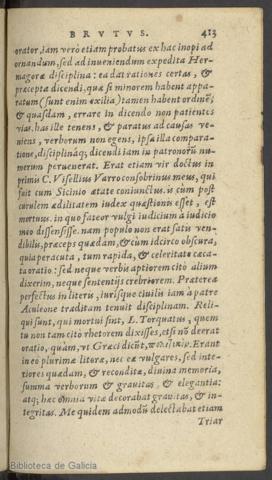 BRVTVS. 413
orator, iam verò etiam probatus ex hac inopi ad
ornandum, sed ad inueniendum expedita Hermagoræ
disciplina: ea dat rationes certas, &
præcepta dicendi, quæ si minorem habent apparatum
(sunt enim exilia) tamen habent ordinẽ;
& quasdam, errare in dicendo non patientes
vias. has ille tenens, & paratus ad causas veniens,
verborum non egens, ipsa illa comparatione,
disciplináq; dicendi iam in patronorũ numerum
peruenerat. Erat etiam vir doctus in
primis C. Visellius Varro consobrinus meus, qui
fuit cum Sicinio ætate coniunctus. is cùm post
curulem ædilitatem iudex quæstionis esset, est
mortuus. in quo fateor vulgi iudicium à iudicio
meo dissensisse. nam populo non erat satis vendibilis,
præceps quædam, & cùm idcirco obscura,
quia peracuta, tum rapida, & celeritate cæcata
oratio: sed neque verbis aptiorem citò alium
dixerim, neque sententijs crebriorem. Præterea
perfectus in literis, iurísque ciuilis iam à patre
Aculeone traditam tenuit disciplinam. Reliqui
sunt, qui mortui sint, L. Torquatus, quem
tu non tam citò rhetorem dixisses, etsi nõ deerat
oratio, quàm, vt Græci dicũt, Erant
in eo plurimæ literæ, nec eæ vulgares, sed interiores
quædam, & reconditæ, diuina memoria,
summa verborum & grauitas, & elegantia:
atq; hæc omnia vitæ decorabat grauitas, & integritas.
Me quidem admodũ delectabat etiam
Triar
Biblioteca de Galicia